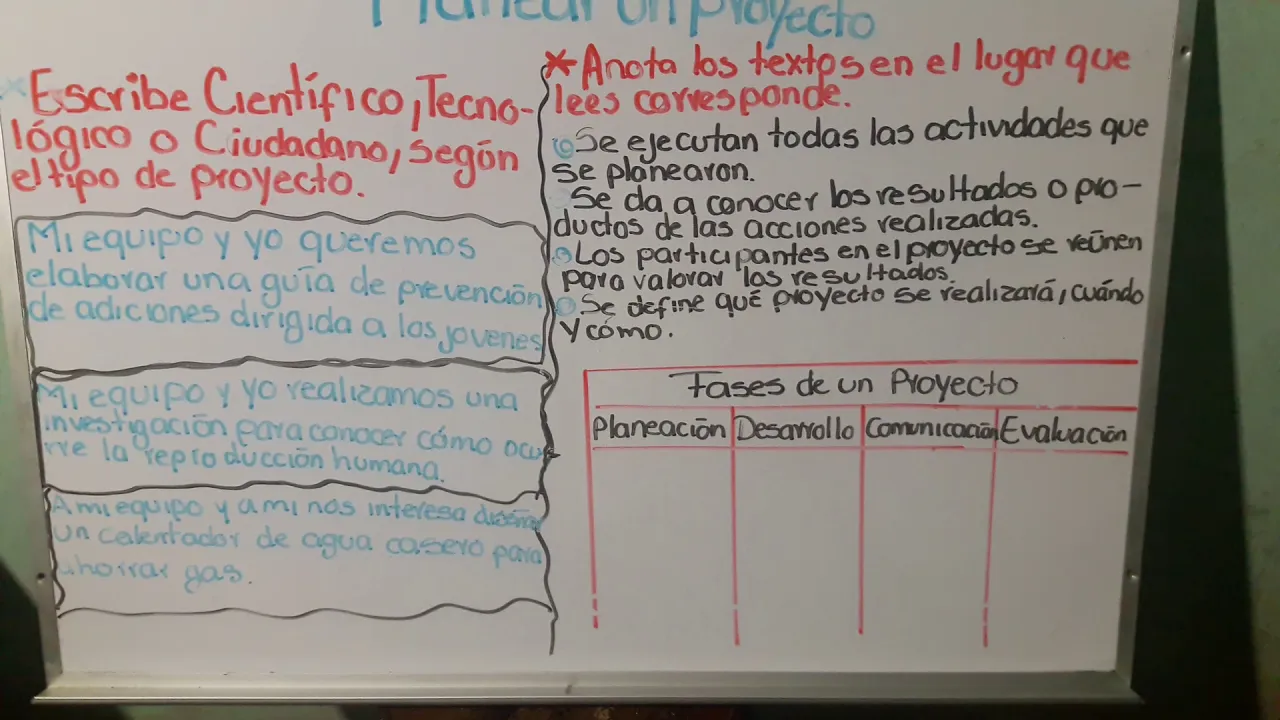 Planear un proyecto
Escribe Científico, Tecno-
lógico o Ciudadano, según
el tipo de proyecto.
Mi equipo y yo queremos
elaborar una guía de prevención
de adiciones dirigida a los jovenes
Mi equipo y yo realizamos una
investigación para conocer cómo ocu
rre la reproducción humana.
A mi equipo y a mi nos interesa diseñar
un calentador de agua casero para
ahorrar gas.
* Anota los textos en el lugar que
lees corresponde.
Se ejecutan todas las actividades que
se planearon.
Se da a conocer los resultados o pro-
ductos de las acciones realizadas.
Los participantes en el proyecto se reúnen
para valorar los resultados.
Se define qué proyecto se realizará, cuándo
y cómo.
Fases de un Proyecto
Planeación Desarrollo Comunicación Evaluación